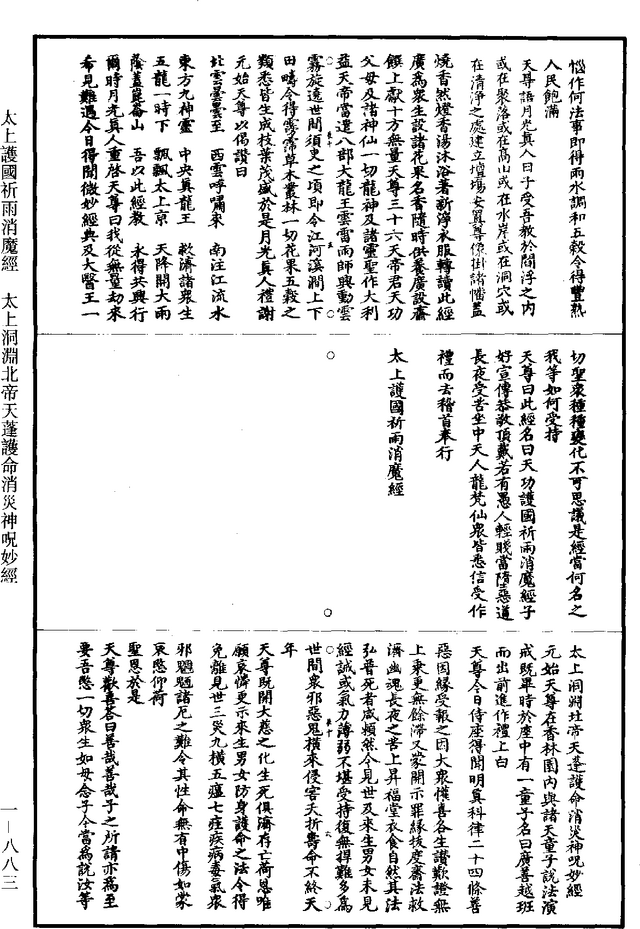 惱作何法事即得雨水調和五穀令得豐熟
人民飽滿
天尊語月光真人曰子受吾教於閻浮之内
或在聚落或在高山或在水岸或在洞穴或
在清淨之處建立壇場安置尊像掛諸幡蓋
燒香然燈香湯沐浴著新淨衣服轉讀此經
廣為衆生設諸花果名香隨時供養廣設齋
饌上獻十方無量天尊三十六天帝君天功
父母及諸神仙一切龍神及諸靈聖作大利
益天帝當遣八部大龍王雲雷雨師興動雲
霧旋遶世間須臾之頃即令江河溪澗上下
田疇令得霧霈草木叢林一切花果五穀之
類悉皆生成枝葉茂盛於是月光真人禮謝
元始天尊以偈讚曰
北雲靉靆至 西雲呼嘯來 南注江流水
東方九神靈 中央真龍王 救濟諸衆生
五龍一時下 飄飄太上京 天降開大雨
蔭蓋崑崙山 吾以此經教 永得共興行
爾時月光真人重啓天尊曰我從無量劫來
希見難遇今日得聞微妙經典及大醫王一
切聖衆種種變化不可思議是經當何名之
我等如何受持
天尊曰此經名曰天功護國祈雨消魔經子
好宣傳恭敬頂戴若有愚人輕賤當墮惡道
長夜受苦坐中天人龍梵仙衆皆悉信受作
禮而去稽首奉行
太上護國祈雨消魔經
太上洞淵北帝天蓬護命消災神呪妙經
元始天尊在香林園内與諸天童子說法演
戒既畢時於座中有一童子名曰廣善越班
而出前進作禮上白
天尊今日侍座得聞明真科律二十四條善
惡因緣受報之因大衆懽喜各生讚歎證無
上乗更無餘滯又蒙開示罪緣拔度齋法救
濟幽魂長夜之苦上昇福堂衣食自然其法
弘普死者咸頼然今見世及來生男女未見
經誡或氣力薄弱不堪受持復無捍難多為
世間衆邪惡鬼横來侵害夭折壽命不終天
年
天尊既開大慈之化生死俱濟存亡荷恩唯
願哀憐更示來生男女防身護命之法令得
免離見世三災九横五瘟七疰疾病毒氣衆
邪魍魎諸厄之難令其性命無有中傷如蒙
哀愍仰荷
聖恩於是
天尊歡喜答曰善哉善哉子之所請亦為至
要吾愍一切衆生如母念子今當為說汝等
太上護國祈雨消魔經 太上洞淵北帝天蓬護命消災神呪妙經
一-八八三